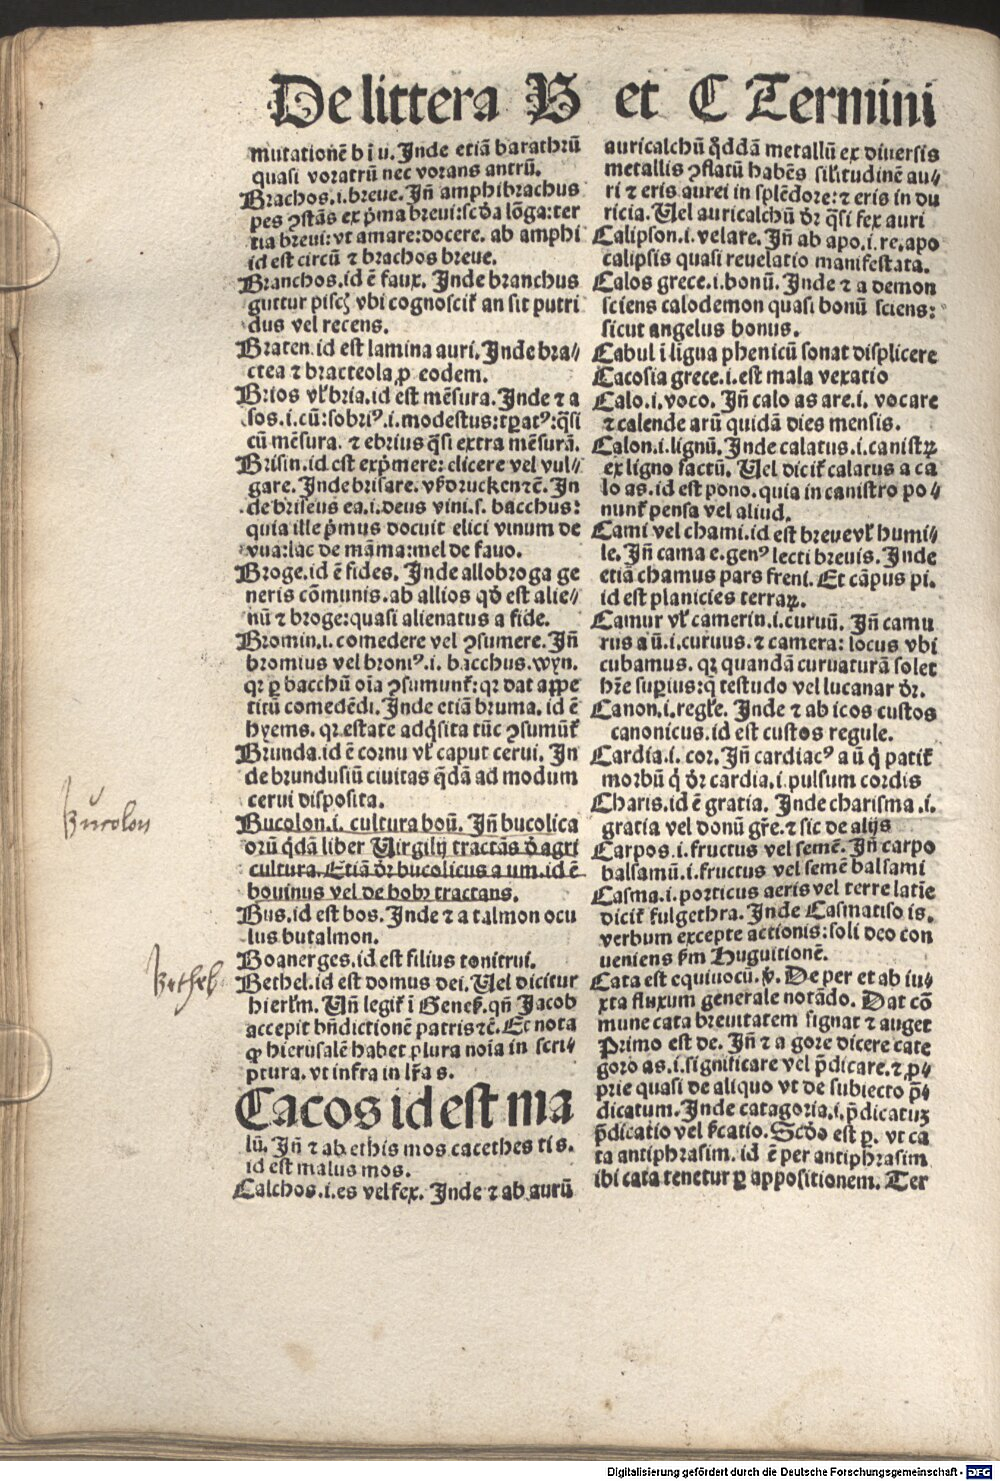 De littera B et C Termini
mutationē b ī u. Inde etiā barathrū
quasi voratrū nec vorans antrū.
Brachos.i.breve. Iñ amphibrachus
pes ꝯstās ex p̄ma brevi:scd̓a lōga:ter
tia brevi: vt amare:docere. ab amphi
id est circū ⁊ brachos breve.
Branchos.id ē faux. Inde branchus
guttur pisc vbi cognoscit̄ an sit putri
dus vel recens.
Braten id est lamina auri. Inde bra//
ctea ⁊ bracteola ꝓ eodem.
Brios vl̓ bria.id est mēsura. Inde ⁊ a
sos.i.cū:sobriꝰ.i.modestus:tꝑatꝰ:q̄si
cū mēsura. ⁊ ebrius q̄si extra mēsurā.
Brisin.id est exp̄mere: elicere vel vul//
gare. Inde brisare. vßdrucken ⁊c̄. In
de briseus ea.i.deus vini.s. bacchus:
quia ille p̄mus docuit elici vinum de
vua:lac de māma:mel de favo.
Broge.id ē fides. Inde allobroga ge
neris cōmunis.ab allios qd̓ est alie//
nū ⁊ broge:quasi alienatus a fide.
Bromin.i.comedere vel ꝯsumere. Iñ
bromius vel broniꝰ.i. bacchus.wyn.
qꝛ ꝑ bacchū oīa ꝯsumunt̄:qꝛ dat appe
titū comedēdi. Inde etiā bruma. id ē
hyems. qꝛ estate adq̄sita tūc ꝯsumūt̄
Brunda.id ē cornu vl̓ caput cerui. In
de brundusiū civitas q̄dā ad modum
cerui disposita.
Bucolon
Bucolon.i. cultura boū. Iñ bucolica
orū q̄dā liber Virgilij tractās d̓ agri
cultura. Etiā dr̄ bucolicus a um.id ē
bovinus vel de bobꝫ tractans.
Bus.id est bos. Inde ⁊ a talmon ocu
lus butalmon.
Boanerges.id est filius tonitrui.
Bethel
Bethel.id est domus dei. Vel dicitur
hierl̄m. Vñ legit̄ ī Geneß. qñ Jacob
accepit bñdictionē patris ⁊c̄. Et nota
ꝙ hierusalē habet plura noīa in scri//
ptura. vt infra in lr̄a s.
Cacos id est ma
lū. Iñ ⁊ ab ethis mos cacethes tis.
id est malus mos.
Calchos.i.es vel fex. Inde ⁊ ab aurū
auricalchū q̄ddā metallū ex diversis
metallis ꝯflatū habēs sil̓itudinē au//
ri ⁊ eris aurei in splēdore:⁊ eris in du
ricia. Vel auricalchū dr̄ q̄si fex auri
Calipson.i.velare. Iñ ab apo.i.re.apo
calipsis quasi revelatio manifestata.
Calos grece.i.bonū. Inde ⁊ a demon
sciens calodemon quasi bonū sciens:
sicut angelus bonus.
Cabul ī līgua phenicū sonat displicere
Cacosia grece.i.est mala vexatio
Calo.i.voco. Iñ calo as are.i. vocare
⁊ calende arū quidā dies mensis.
Calon.i.lignū. Inde calatus.i.canistꝝ
ex ligno factū. Vel dicit̄ calatus a ca
lo as.id est pono. quia in canistro po//
nunt̄ pensa vel aliud.
Cami vel chami.id est breve vl̓ humi//
le. Iñ cama e.genꝰ lecti brevis. Inde
etiā chamus pars freni. Et cāpus pi.
id est planicies terraꝝ.
Camur vl̓ camerin.i.curuū. Iñ camu
rus a ū.i.curuus.⁊ camera: locus vbi
cubamus. qꝛ quandā curuaturā solet
hr̄e supius:q̄ testudo vel lucanar dr̄.
Canon.i.regl̓e. Inde ⁊ ab icos custos
canonicus.id est custos regule.
Cardia.i. cor. Iñ cardiacꝰ a ū q̄ patit̄
morbū q̄ dr̄ cardia.i.pulsum cordis
Charis.id ē gratia. Inde charisma.i.
gratia vel donū gr̄e.⁊ sic de alijs
Carpos.i.fructus vel semē. Iñ carpo
balsamū.i.fructus vel semē balsami
Casma.i.porticus aeris vel terre latīe
dicit̄ fulgethra. Inde Casmatiso is.
verbum excepte actionis:soli deo con
ueniens ẜm Huguitionē.
Cata est equivocū. v̓. De per et ab iu//
xta fluxum generale notādo. Dat cō
mune cata brevitatem signat ⁊ auget
Primo est de. Iñ ⁊ a gore dicere cate
goro as.i.significare vel p̄dicare.⁊ ꝓ//
prie quasi de aliquo vt de subiecto p̄//
dicatum. Inde catagoria.i.p̄dicatuꝫ
p̄dicatio vel ẜcatio. Scd̓o est ꝑ. vt ca
ta antiphrasim. id ē per antiphrasim
ibi cata tenetur ꝑ appositionem. Ter
Digitalisierung gefördert durch die Deutsche Forschungsgemeinschaft - DFG